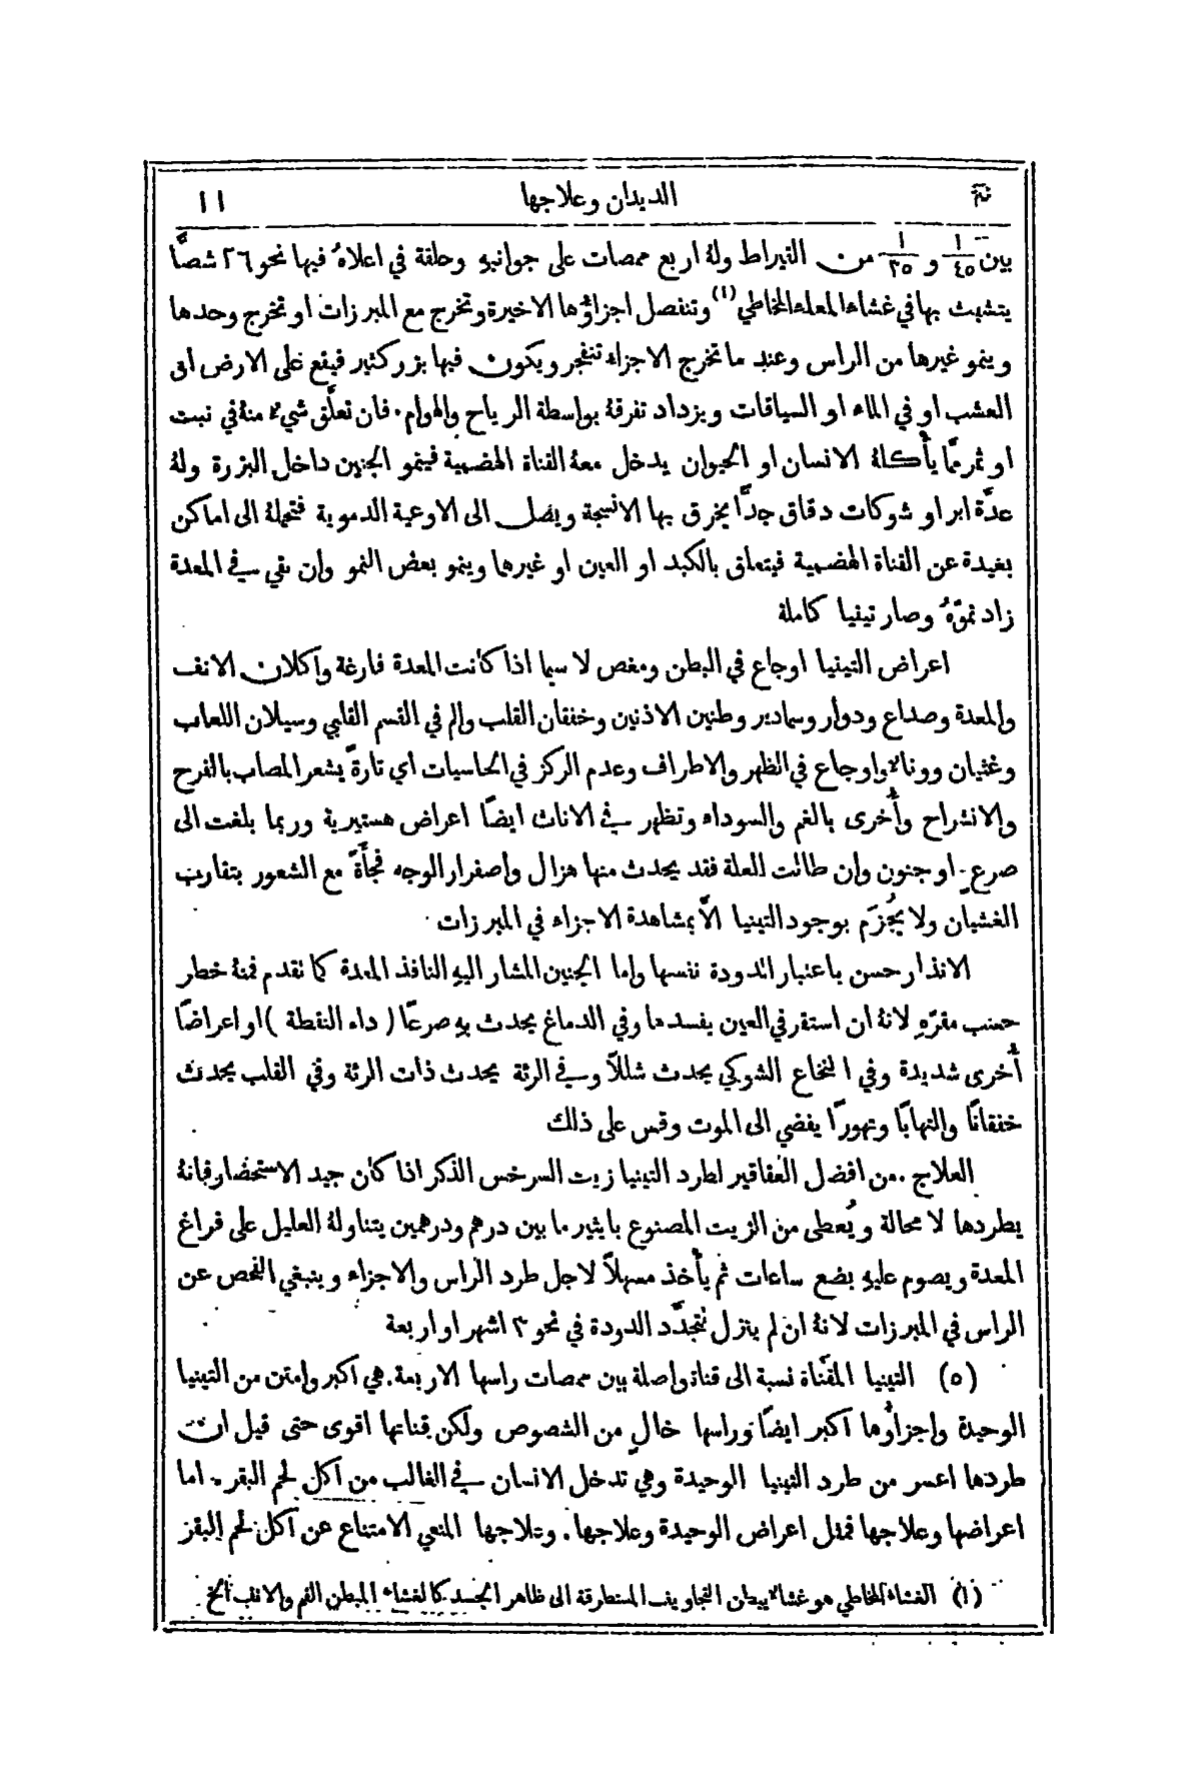 الديدان وعلاجها ١١
بين ١/٤٥ و ١/٣٥ من القيراط ولهُ اربع ممصات على جوانبهِ وحلقة في اعلاهُ فيها نحو ٢٦ شصًّا
يتشبث بها في غشاء المعاء المخاطي (١) وتنفصل اجزاؤها الاخيرة وتخرج مع المبرزات او تخرج وحدها
وينمو غيرها من الراس وعند ما تخرج الاجزاء تنفجر ويكون فيها بزر كثير فيقع على الارض او
العشب او في الماء او السياقات ويزداد تفرقهُ بواسطة الرياح والهوام. فان تعلَّق شيءٌ منهُ في نبت
او ثمر ممَّا يأكلهُ الانسان او الحيوان يدخل معهُ القناة الهضمية فينمو الجنين داخل البزرة ولهُ
عدَّة ابر او شوكات دقاق جدًّا يخرق بها الانسجة ويصل الى الاوعية الدموية فتحملهُ الى اماكن
بعيدة عن القناة الهضمية فيتعلق بالكبد او العين او غيرها وينمو بعض النمو وان بقي في المعدة
زاد نموّهُ وصار تينيا كاملة
اعراض التينيا اوجاع في البطن ومغص لا سيما اذا كانت المعدة فارغة واكلان الانف
والمعدة وصداع ودوار وسمادير وطنين الاذنين وخفقان القلب والم في القسم القلبي وسيلان اللعاب
وغثيان وونالا واوجاع في الظهر والاطراف وعدم الركز في الحاسيات اي تارةً يشعر المصاب بالفرح
والانشراح وأُخرى بالغم والسوداء وتظهر في الاناث ايضًا اعراض هستيرية وربما بلغت الى
صرعٍ او جنون وان طالت العلة فقد يحدث منها هزال واصفرار الوجه فجأَةً مع الشعور بتقارب
الغشيان ولا يُجزَم بوجود التينيا الاَّ بمشاهدة الاجزاء في المبرزات
الانذار حسن باعتبار الدودة نفسها واما الجنين المشار اليهِ النافذ المعدة كما تقدم فمنهُ خطر
حسب مقرّهِ لانهُ ان استقر في العين يفسدها وفي الدماغ يحدث بهِ صرعًا (داء النقطة) او اعراضًا
أُخرى شديدة وفي النخاع الشوكي يحدث شللاً وفي الرئة يحدث ذات الرئة وفي القلب يحدث
خفقانًا والتهابًا وتهورًا يفضي الى الموت وقس على ذلك
العلاج. من افضل العقاقير لطرد التينيا زيت السرخس الذكر اذا كان جيد الاستحضار فانهُ
يطردها لا محالة ويُعطى من الزيت المصنوع بايثير ما بين درهم ودرهمين يتناولهُ العليل على فراغ
المعدة ويصوم عليهِ بضع ساعات ثم يأخذ مسهلاً لاجل طرد الراس والاجزاء وينبغي الفحص عن
الراس في المبرزات لانهُ ان لم ينزل تتجدَّد الدودة في نحو ٣ اشهر او اربعة
(٥) التينيا المقنَّاة نسبة الى قناة واصلة بين ممصات راسها الاربعة. هي اكبر وامتن من التينيا
الوحيدة واجزاؤُها اكبر ايضًا وراسها خالٍ من الشصوص ولكن قناتها اقوى حتى قيل ان
طردها اعسر من طرد التينيا الوحيدة وهي تدخل الانسان في الغالب من اكل لحم البقر. اما
اعراضها وعلاجها فمثل اعراض الوحيدة وعلاجها. وعلاجها المنعي الامتناع عن اكل لحم البقر
(١) الغشاء المخاطي هو غشاءٌ يبطن التجاويف المتطرقة الى ظاهر الجسد كالغشاء المبطن الفم والانف الخ